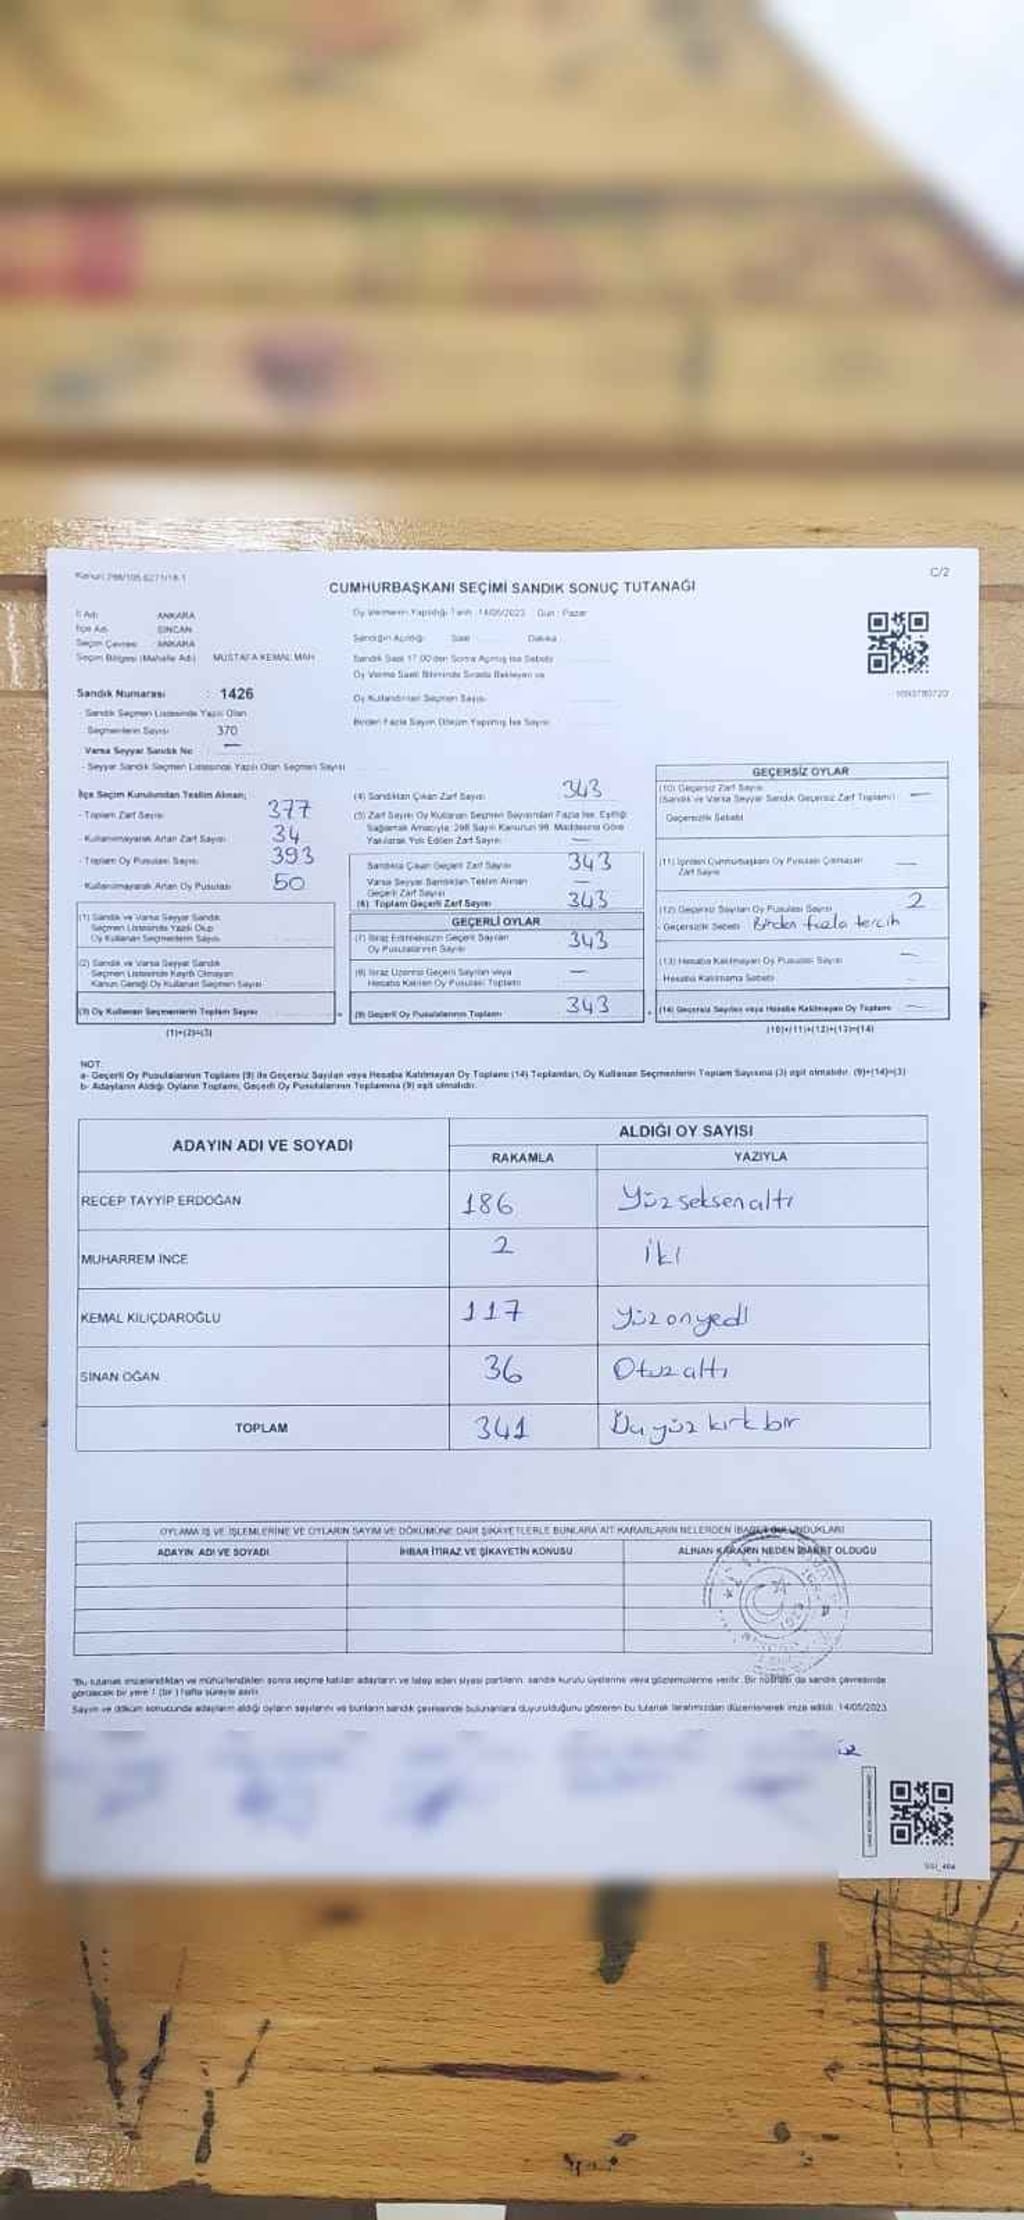 Kanun: 298/105 6271/18-1
C/2
CUMHURBAŞKANI SEÇİMİ SANDIK SONUÇ TUTANAĞI
İl Adı: ANKARA
İlçe Adı SİNCAN
Seçim Çevresi ANKARA
Seçim Bölgesi (Mahalle Adı) MUSTAFA KEMAL MAH
Sandık Numarası : 1426
Sandık Seçmen Listesinde Yazılı Olan
Seçmenlerin Sayısı 370
Varsa Seyyar Sandık No —
- Seyyar Sandık Seçmen Listesinde Yazılı Olan Seçmen Sayısı
Oy Vermenin Yapıldığı Tarih : 14/05/2023 Gün : Pazar
Sandığın Açıldığı Saat Dakika
Sandık Saat 17.00'den Sonra Açılmış İse Sebebi
Oy Verme Saati Bitiminde Sırada Bekleyen ve
Oy Kullandırılan Seçmen Sayısı
Birden Fazla Sayım Döküm Yapılmış İse Sayısı
İlçe Seçim Kurulundan Teslim Alınan;
- Toplam Zarf Sayısı 377
- Kullanılmayarak Artan Zarf Sayısı 34
- Toplam Oy Pusulası Sayısı 393
- Kullanılmayarak Artan Oy Pusulası 50
(1) Sandık ve Varsa Seyyar Sandık
Seçmen Listesinde Yazılı Olup
Oy Kullanan Seçmenlerin Sayısı
(2) Sandık ve Varsa Seyyar Sandık
Seçmen Listesinde Kayıtlı Olmayan
Kanun Gereği Oy Kullanan Seçmen Sayısı
(3) Oy Kullanan Seçmenlerin Toplam Sayısı
(1)+(2)=(3)
(4) Sandıktan Çıkan Zarf Sayısı 343
(5) Zarf Sayısı Oy Kullanan Seçmen Sayısından Fazla İse, Eşitliği
Sağlamak Amacıyla, 298 Sayılı Kanunun 98. Maddesine Göre
Yakılarak Yok Edilen Zarf Sayısı —
Sandıkta Çıkan Geçerli Zarf Sayısı 343
Varsa Seyyar Sandıktan Teslim Alınan
Geçerli Zarf Sayısı —
(6) Toplam Geçerli Zarf Sayısı 343
GEÇERLİ OYLAR
(7) İtiraz Edilmeksizin Geçerli Sayılan
Oy Pusulalarının Sayısı 343
(8) İtiraz Üzerine Geçerli Sayılan veya
Hesaba Katılan Oy Pusulası Toplamı —
(9) Geçerli Oy Pusulalarının Toplamı 343
GEÇERSİZ OYLAR
(10) Geçersiz Zarf Sayısı
(Sandık ve Varsa Seyyar Sandık Geçersiz Zarf Toplamı) —
Geçersizlik Sebebi
(11) İçinden Cumhurbaşkanı Oy Pusulası Çıkmayan
Zarf Sayısı —
(12) Geçersiz Sayılan Oy Pusulası Sayısı 2
- Geçersizlik Sebebi Birden fazla tercih
(13) Hesaba Katılmayan Oy Pusulası Sayısı —
Hesaba Katılmama Sebebi —
(14) Geçersiz Sayılan veya Hesaba Katılmayan Oy Toplamı —
(10)+(11)+(12)+(13)=(14)
NOT:
a- Geçerli Oy Pusulalarının Toplamı (9) ile Geçersiz Sayılan veya Hesaba Katılmayan Oy Toplamı (14) Toplamları, Oy Kullanan Seçmenlerin Toplam Sayısına (3) eşit olmalıdır. (9)+(14)=(3)
b- Adayların Aldığı Oyların Toplamı, Geçerli Oy Pusulalarının Toplamına (9) eşit olmalıdır.
ADAYIN ADI VE SOYADI
ALDIĞI OY SAYISI
RAKAMLA YAZIYLA
RECEP TAYYİP ERDOĞAN 186 Yüzseksenaltı
MUHARREM İNCE 2 iki
KEMAL KILIÇDAROĞLU 117 yüzonyedi
SİNAN OĞAN 36 Otuzaltı
TOPLAM 341 Üçyüz kırk bir
OYLAMA İŞ VE İŞLEMLERİNE VE OYLARIN SAYIM VE DÖKÜMÜNE DAİR ŞİKAYETLERLE BUNLARA AİT KARARLARIN NELERDEN İBARET BULUNDUKLARI
ADAYIN ADI VE SOYADI İHBAR İTİRAZ VE ŞİKAYETİN KONUSU ALINAN KARARIN NEDEN İBARET OLDUĞU
"Bu tutanak imzalandıktan ve mühürlendikten sonra seçime katılan adayların ve talep eden siyasi partilerin sandık kurulu üyelerine veya gözlemcilerine verilir. Bir nüshası da sandık çevresinde
görülecek bir yere 1 (bir) hafta süreyle asılır.
Sayım ve döküm sonucunda adayların aldığı oyların sayılarını ve bunların sandık çevresinde bulunanlara duyurulduğunu gösteren bu tutanak tarafımızdan düzenlenerek imza edildi. 14/05/2023